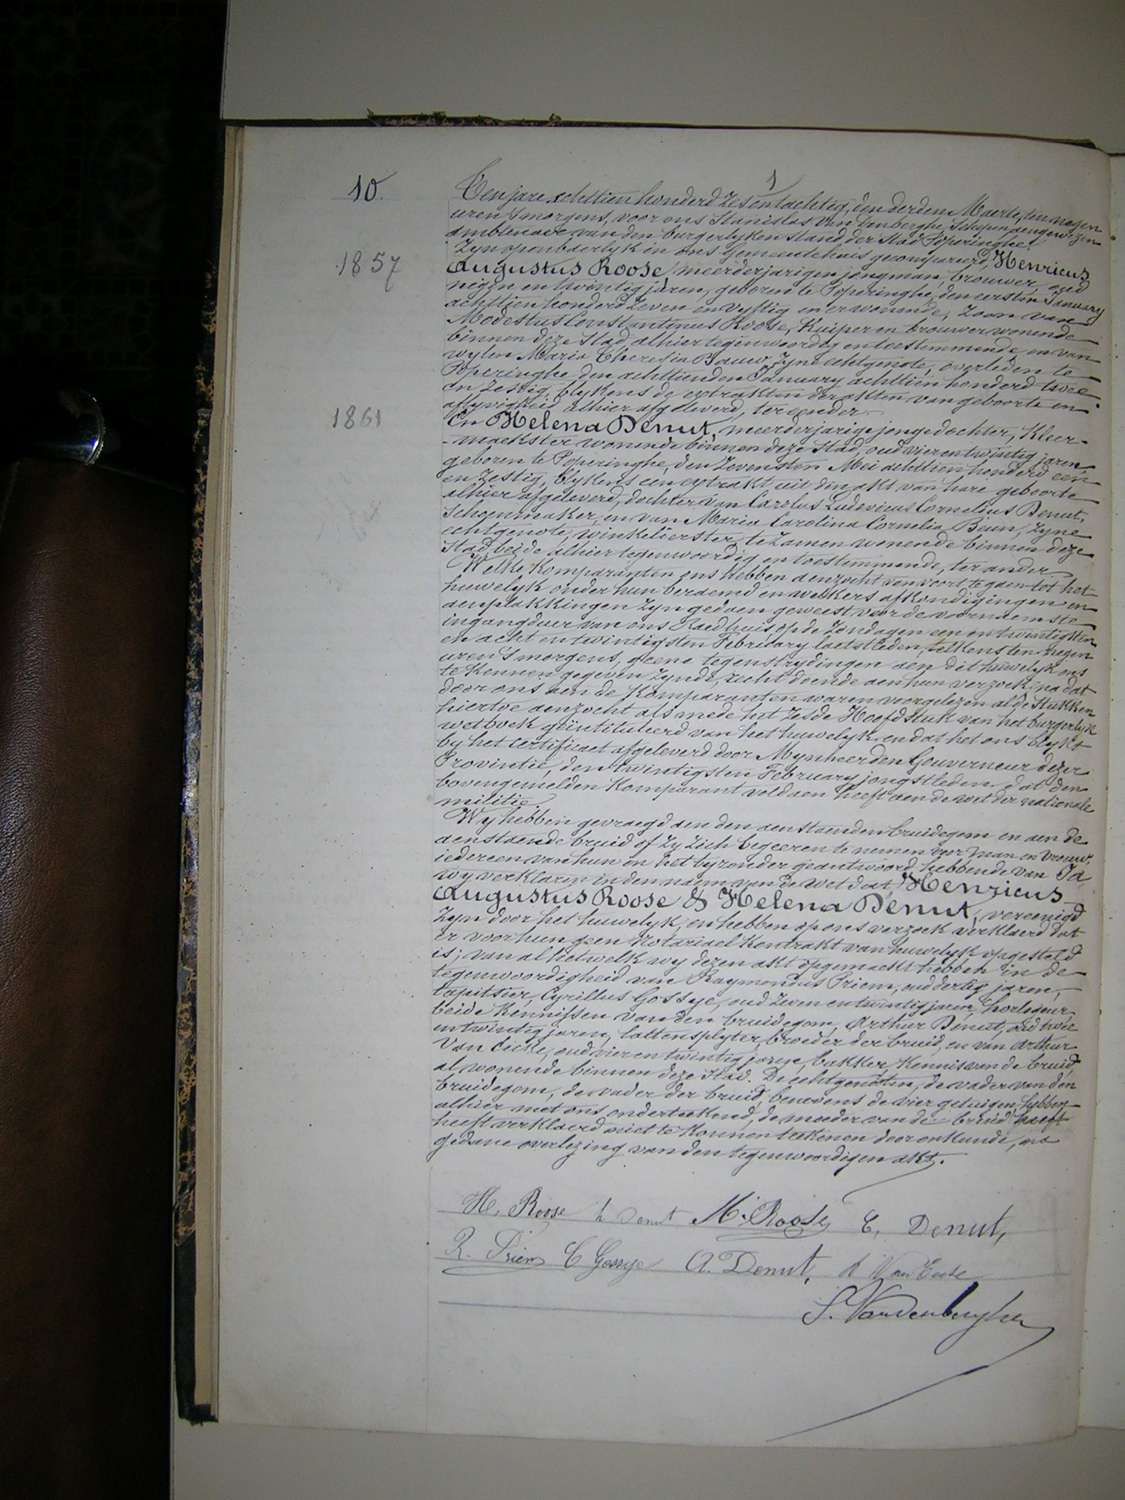 1
10.
Ten jare achttien honderd zes en tachtig, den derden Maerte, ten negen
uren 's morgens, voor ons Stanislas Van den berghe Schepen aengewezen
ambtenaer van den burgerlyken stand der Stad Poperinghe
Zyn openbaerlyk in ons Gemeentehuis gecompareerd, Henricus
1857
Augustus Roose, meerderjarigen jongman, brouwer, oud
negen en twintig jaren, geboren te Poperinghe, den eersten January
achttien honderd zeven en vyftig en er wonende, zoon van
Modestus Constantinus Roose, Kuiper en brouwer wonende
binnen deze stad, alhier tegenwoordig en toestemmende, en van
wylen Maria Theresia Bauw, zyne echtgenote, overleden te
Poperinghe den achttienden January achttien honderd twee
en zestig, blykens de extrakten der akten van geboorte en
aflyvigheid alhier afgeleverd, ter eender
1861
En Helena Denut, meerderjarige jonge dochter, kleer-
-maekster wonende binnen deze Stad, oud vier en twintig jaren
geboren te Poperinghe, den zevensten Mei achttien honderd een
en zestig, blykens een extrakt uit den akt van hare geboorte
alhier afgeleverd, dochter van Carolus Ludovicus Cornelius Denut,
Schoenmaker, en van Maria Carolina Cornelia Beun, zyne
echtgenote, winkelierster, te zamen wonende binnen deze
Stad, beide alhier tegenwoordig en toestemmende, ter ander
Welke komparanten ons hebben aenzocht van voort te gaen tot het
huwelyk onder hun beraemd en welkers afkondigingen en
aenplakkingen zyn gedaen geweest voor de voornaemste
ingangdeur van ons Raedhuis, op de Zondagen een en twintigsten
en acht en twintigsten February laetstleden, telkens ten negen
uren 's morgens, geene tegenstrydingen aen dit huwelyk ons
te kennen gegeven zynde, recht doende aen hun verzoek, na dat
door ons aen de komparanten waren voorgelezen al de stukken
hiertoe aenzocht als mede het zesde Hoofdstuk van het burgerlyk
wetboek geïntituleerd van het huwelyk, en dat het ons blykt
by het certificaet afgeleverd door Mynheer den Gouverneur dezer
Provintie, den twintigsten February jongstleden dat den
bovengemelden komparant voldaen heeft aen de wet der nationale
militie
Wy hebben gevraegd aen den aenstaenden bruidegom en aen de
aenstaende bruid of zy zich begeeren te nemen voor man en vrouw,
iedereen van hun in het byzonder geantwoord hebbende van Ja
wy verklaren in den naem van de wet dat Henricus
Augustus Roose & Helena Denut, vereenigd
zyn door het huwelyk, en hebben op ons verzoek verklaerd dat
er voor hun geen Notariael kontrakt van huwelyk opgesteld
is; van al hetwelk wy dezen akt opgemaekt hebben in de
tegenwoordigheid van Raymondus Priem, oud dertig jaren,
tapitsier, Cyrillus Gossye, oud zeven en twintig jaren, horlogeur
beide kennissen van den bruidegom, Arthur Denut, oud twee
en twintig jaren, lattensplyter, broeder der bruid, en van Arthur
Van Eecke, oud vier en twintig jaren, bakker, kennis van de bruid,
al wonende binnen deze stad. De echtgenoten, de vader van den
bruidegom, de vader der bruid, benevens de vier getuigen hebben
alhier met ons onderteekend, de moeder van de bruid heeft
heeft verklaerd niet te kennen teekenen door onkunde, na
gedane overlezing van den tegenwoordigen akt.
H. Roose h Denut M. Roose C. Denut,
R. Priem C Gossye A. Denut, A Van Eecke
S. Vandenberghe